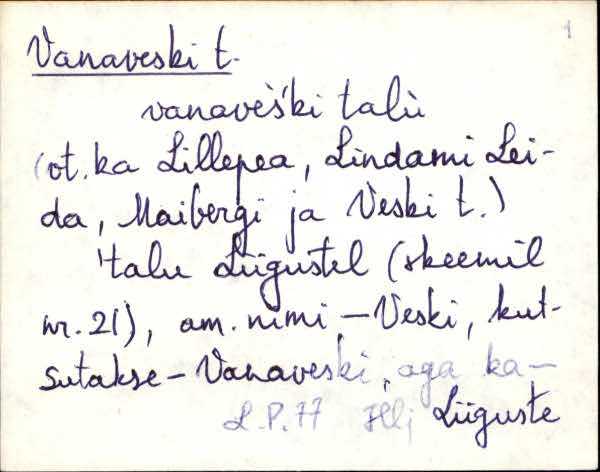 1
Vanaveski t.
vanaveški talù
(ot. ka Lillepea, Lindami Lei-
da, Maibergi ja Veski t.)
'talu Liigustel (skeemil
nr. 21), am. nimi - Veski, kut-
sutakse - Vanaveski, aga ka -
L.P. 77 Hlj Liiguste